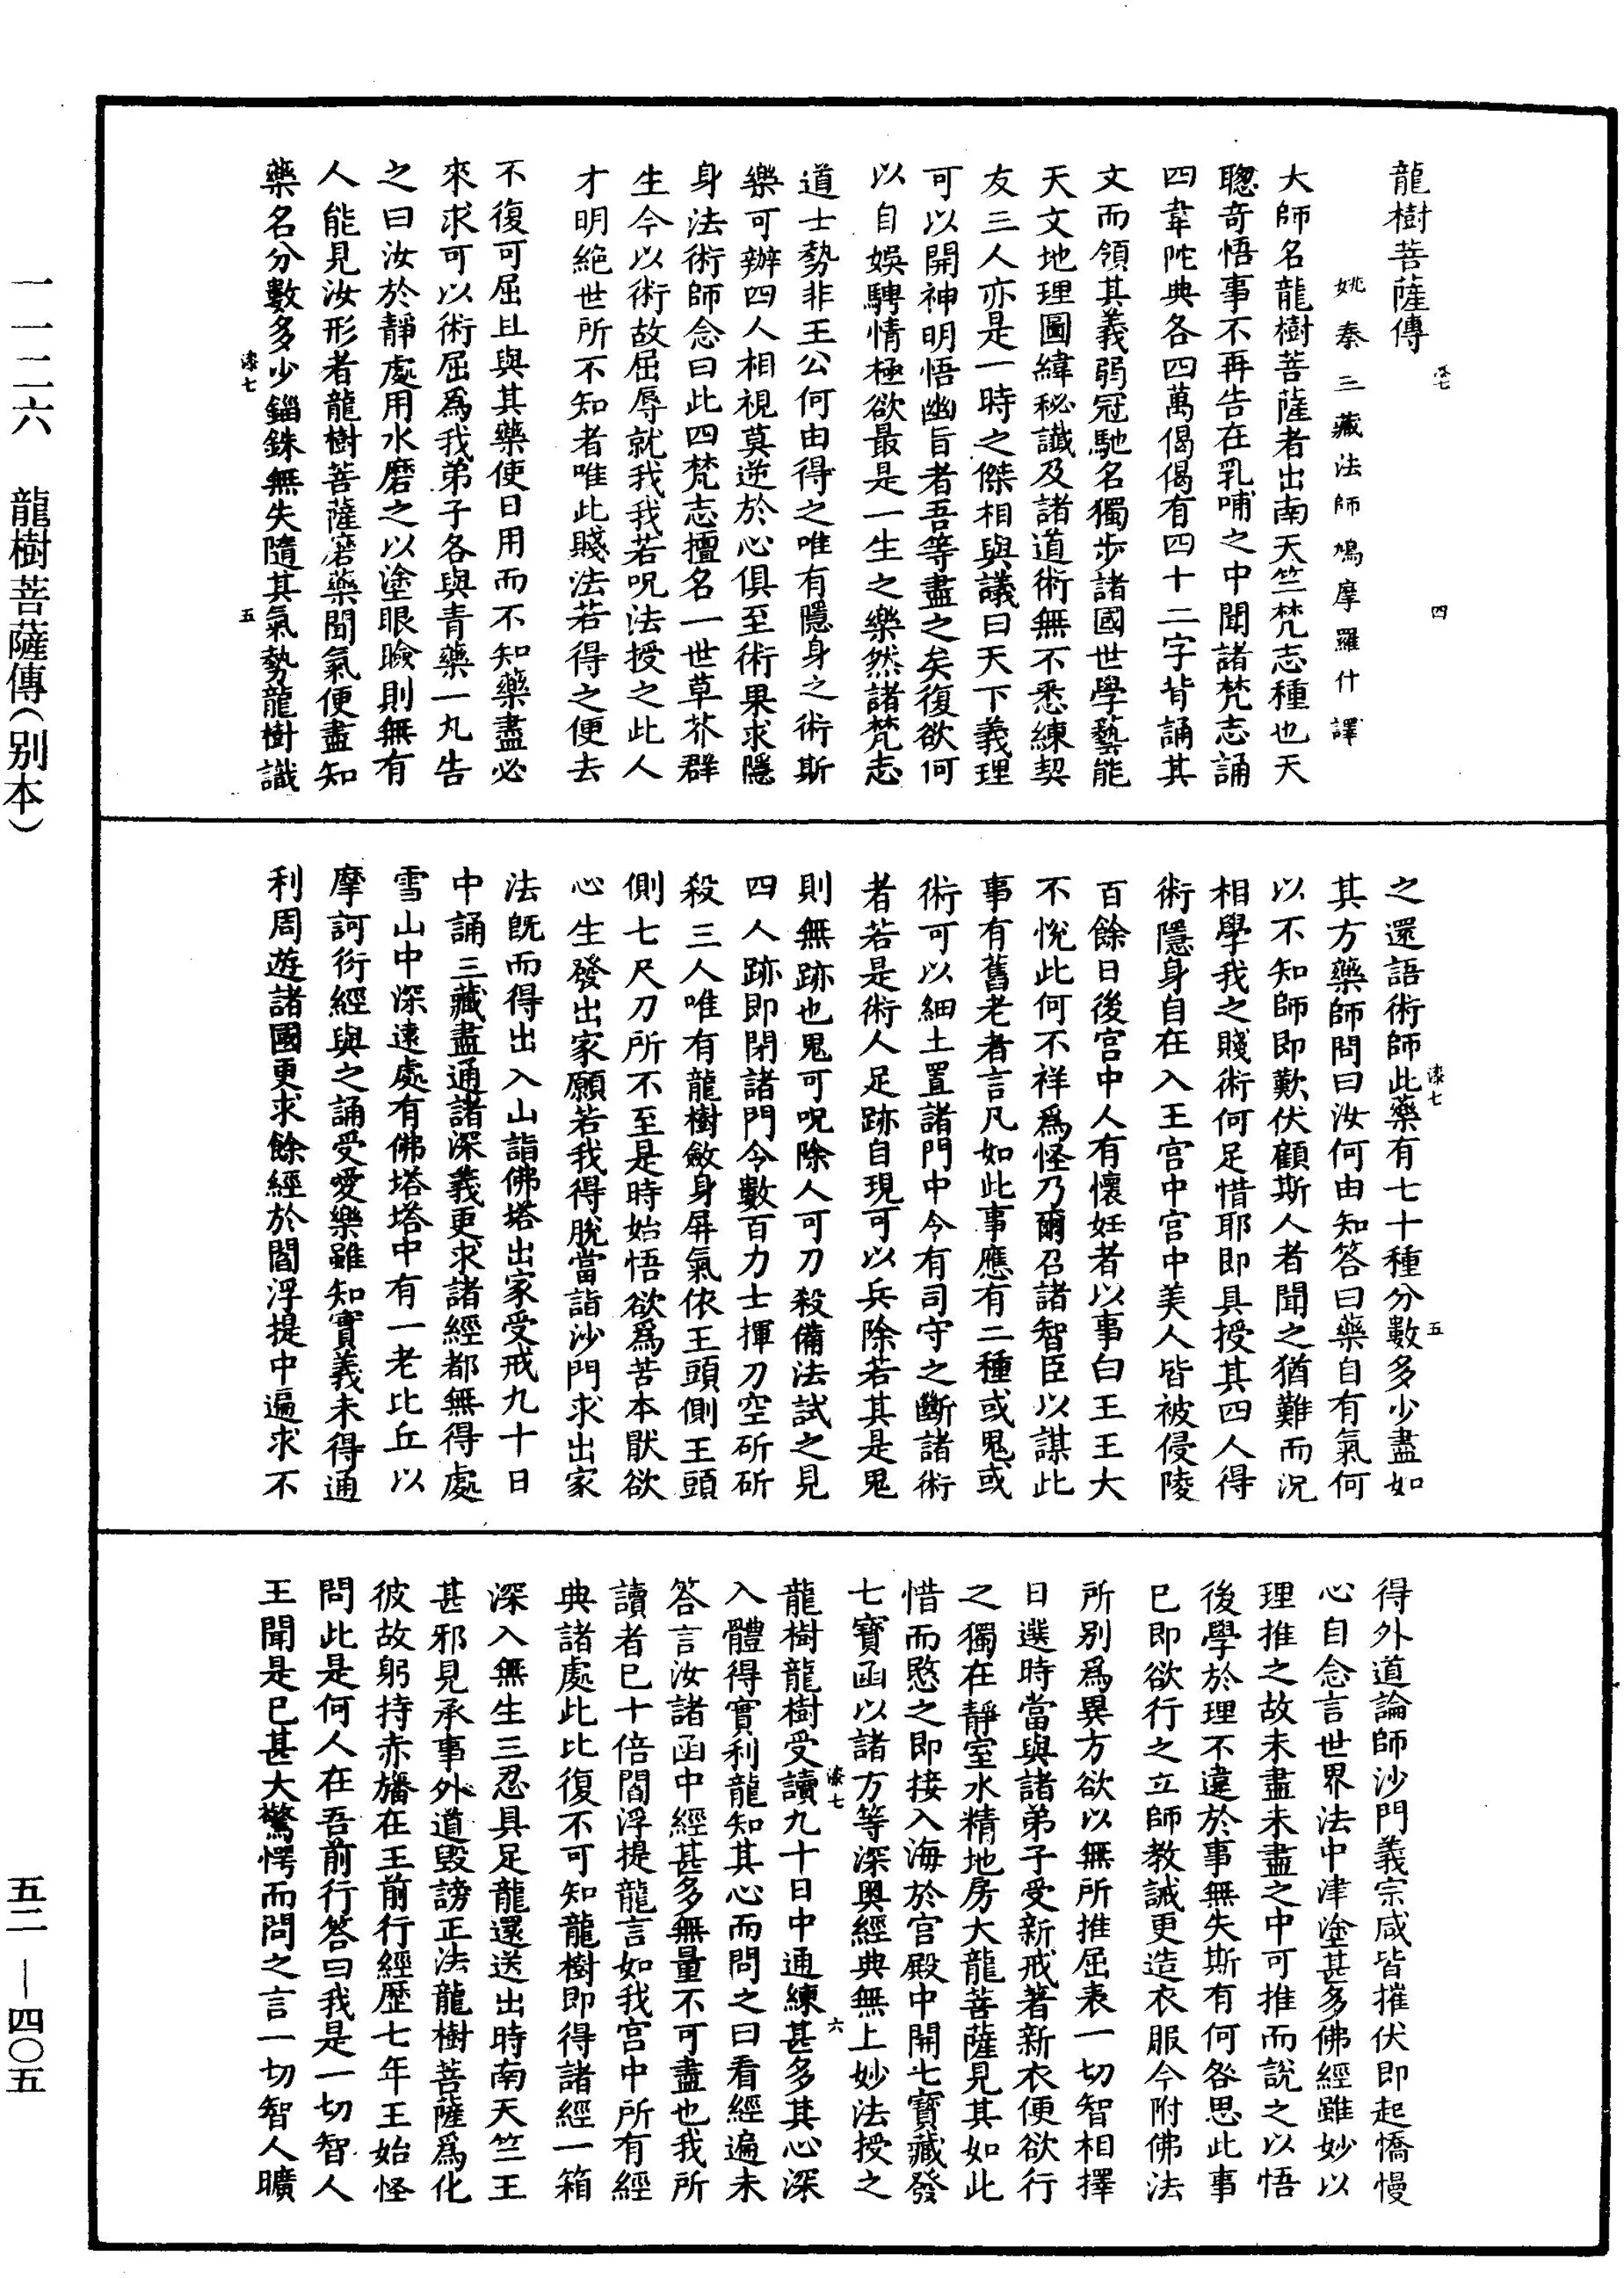 龍樹菩薩傳
漆七
四
姚秦三藏法師鳩摩羅什譯
大師名龍樹菩薩者出南天竺梵志種也天
聰奇悟事不再告在乳哺之中聞諸梵志誦
四韋陀典各四萬偈偈有四十二字背誦其
文而領其義弱冠馳名獨步諸國世學藝能
天文地理圖緯秘讖及諸道術無不悉練契
友三人亦是一時之傑相與議曰天下義理
可以開神明悟幽旨者吾等盡之矣復欲何
以自娛騁情極欲最是一生之樂然諸梵志
道士勢非王公何由得之唯有隱身之術斯
樂可辦四人相視莫逆於心俱至術果求隱
身法術師念曰此四梵志擅名一世草芥群
生今以術故屈辱就我我若呪法授之此人
才明絶世所不知者唯此賤法若得之便去
不復可屈且與其藥使日用而不知藥盡必
來求可以術屈爲我弟子各與青藥一丸告
之曰汝於靜處用水磨之以塗眼瞼則無有
人能見汝形者龍樹菩薩磨藥聞氣便盡知
藥名分數多少錙銖無失隨其氣勢龍樹識
漆七
五
之還語術師此藥有七十種分數多少盡如
漆七
五
其方藥師問曰汝何由知答曰藥自有氣何
以不知師即歎伏顧斯人者聞之猶難而況
相學我之賤術何足惜耶即具授其四人得
術隱身自在入王宫中宫中美人皆被侵陵
百餘日後宫中人有懷妊者以事白王王大
不悅此何不祥爲怪乃爾召諸智臣以謀此
事有舊老者言凡如此事應有二種或鬼或
術可以細土置諸門中令有司守之斷諸術
者若是術人足跡自現可以兵除若其是鬼
則無跡也鬼可呪除人可刀殺備法試之見
四人跡即閉諸門令數百力士揮刀空斫斫
殺三人唯有龍樹斂身屏氣依王頭側王頭
側七尺刀所不至是時始悟欲爲苦本厭欲
心生發出家願若我得脫當詣沙門求出家
法旣而得出入山詣佛塔出家受戒九十日
中誦三藏盡通諸深義更求諸經都無得處
雪山中深遠處有佛塔塔中有一老比丘以
摩訶衍經與之誦受愛樂雖知實義未得通
利周遊諸國更求餘經於閻浮提中遍求不
得外道論師沙門義宗咸皆摧伏即起憍慢
心自念言世界法中津塗甚多佛經雖妙以
理推之故未盡未盡之中可推而說之以悟
後學於理不違於事無失斯有何咎思此事
已即欲行之立師教誡更造衣服今附佛法
所別爲異方欲以無所推屈表一切智相擇
日選時當與諸弟子受新戒著新衣便欲行
之獨在靜室水精地房大龍菩薩見其如此
惜而愍之即接入海於宫殿中開七寶藏發
七寶函以諸方等深奥經典無上妙法授之
漆七
六
龍樹龍樹受讀九十日中通練甚多其心深
入體得實利龍知其心而問之曰看經遍未
答言汝諸函中經甚多無量不可盡也我所
讀者已十倍閻浮提龍言如我宫中所有經
典諸處此比復不可知龍樹即得諸經一箱
深入無生三忍具足龍還送出時南天竺王
甚邪見承事外道毀謗正法龍樹菩薩爲化
彼故躬持赤旛在王前行經歷七年王始怪
問此是何人在吾前行答曰我是一切智人
王聞是已甚大驚愕而問之言一切智人曠
一一二六　龍樹菩薩傳（別本）
五二—四〇五